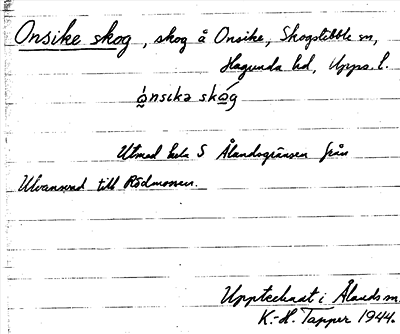 Onsike skog, skog å Onsike, Skogstibble sn,
Hagunda hd, Upps. l.
ó̰nsikə skó̰g
Utmed hela S Ålandsgränsen från
Ulvansved till Rödmossen.
Upptecknat i Ålands sn.
K.-H. Tapper 1944.